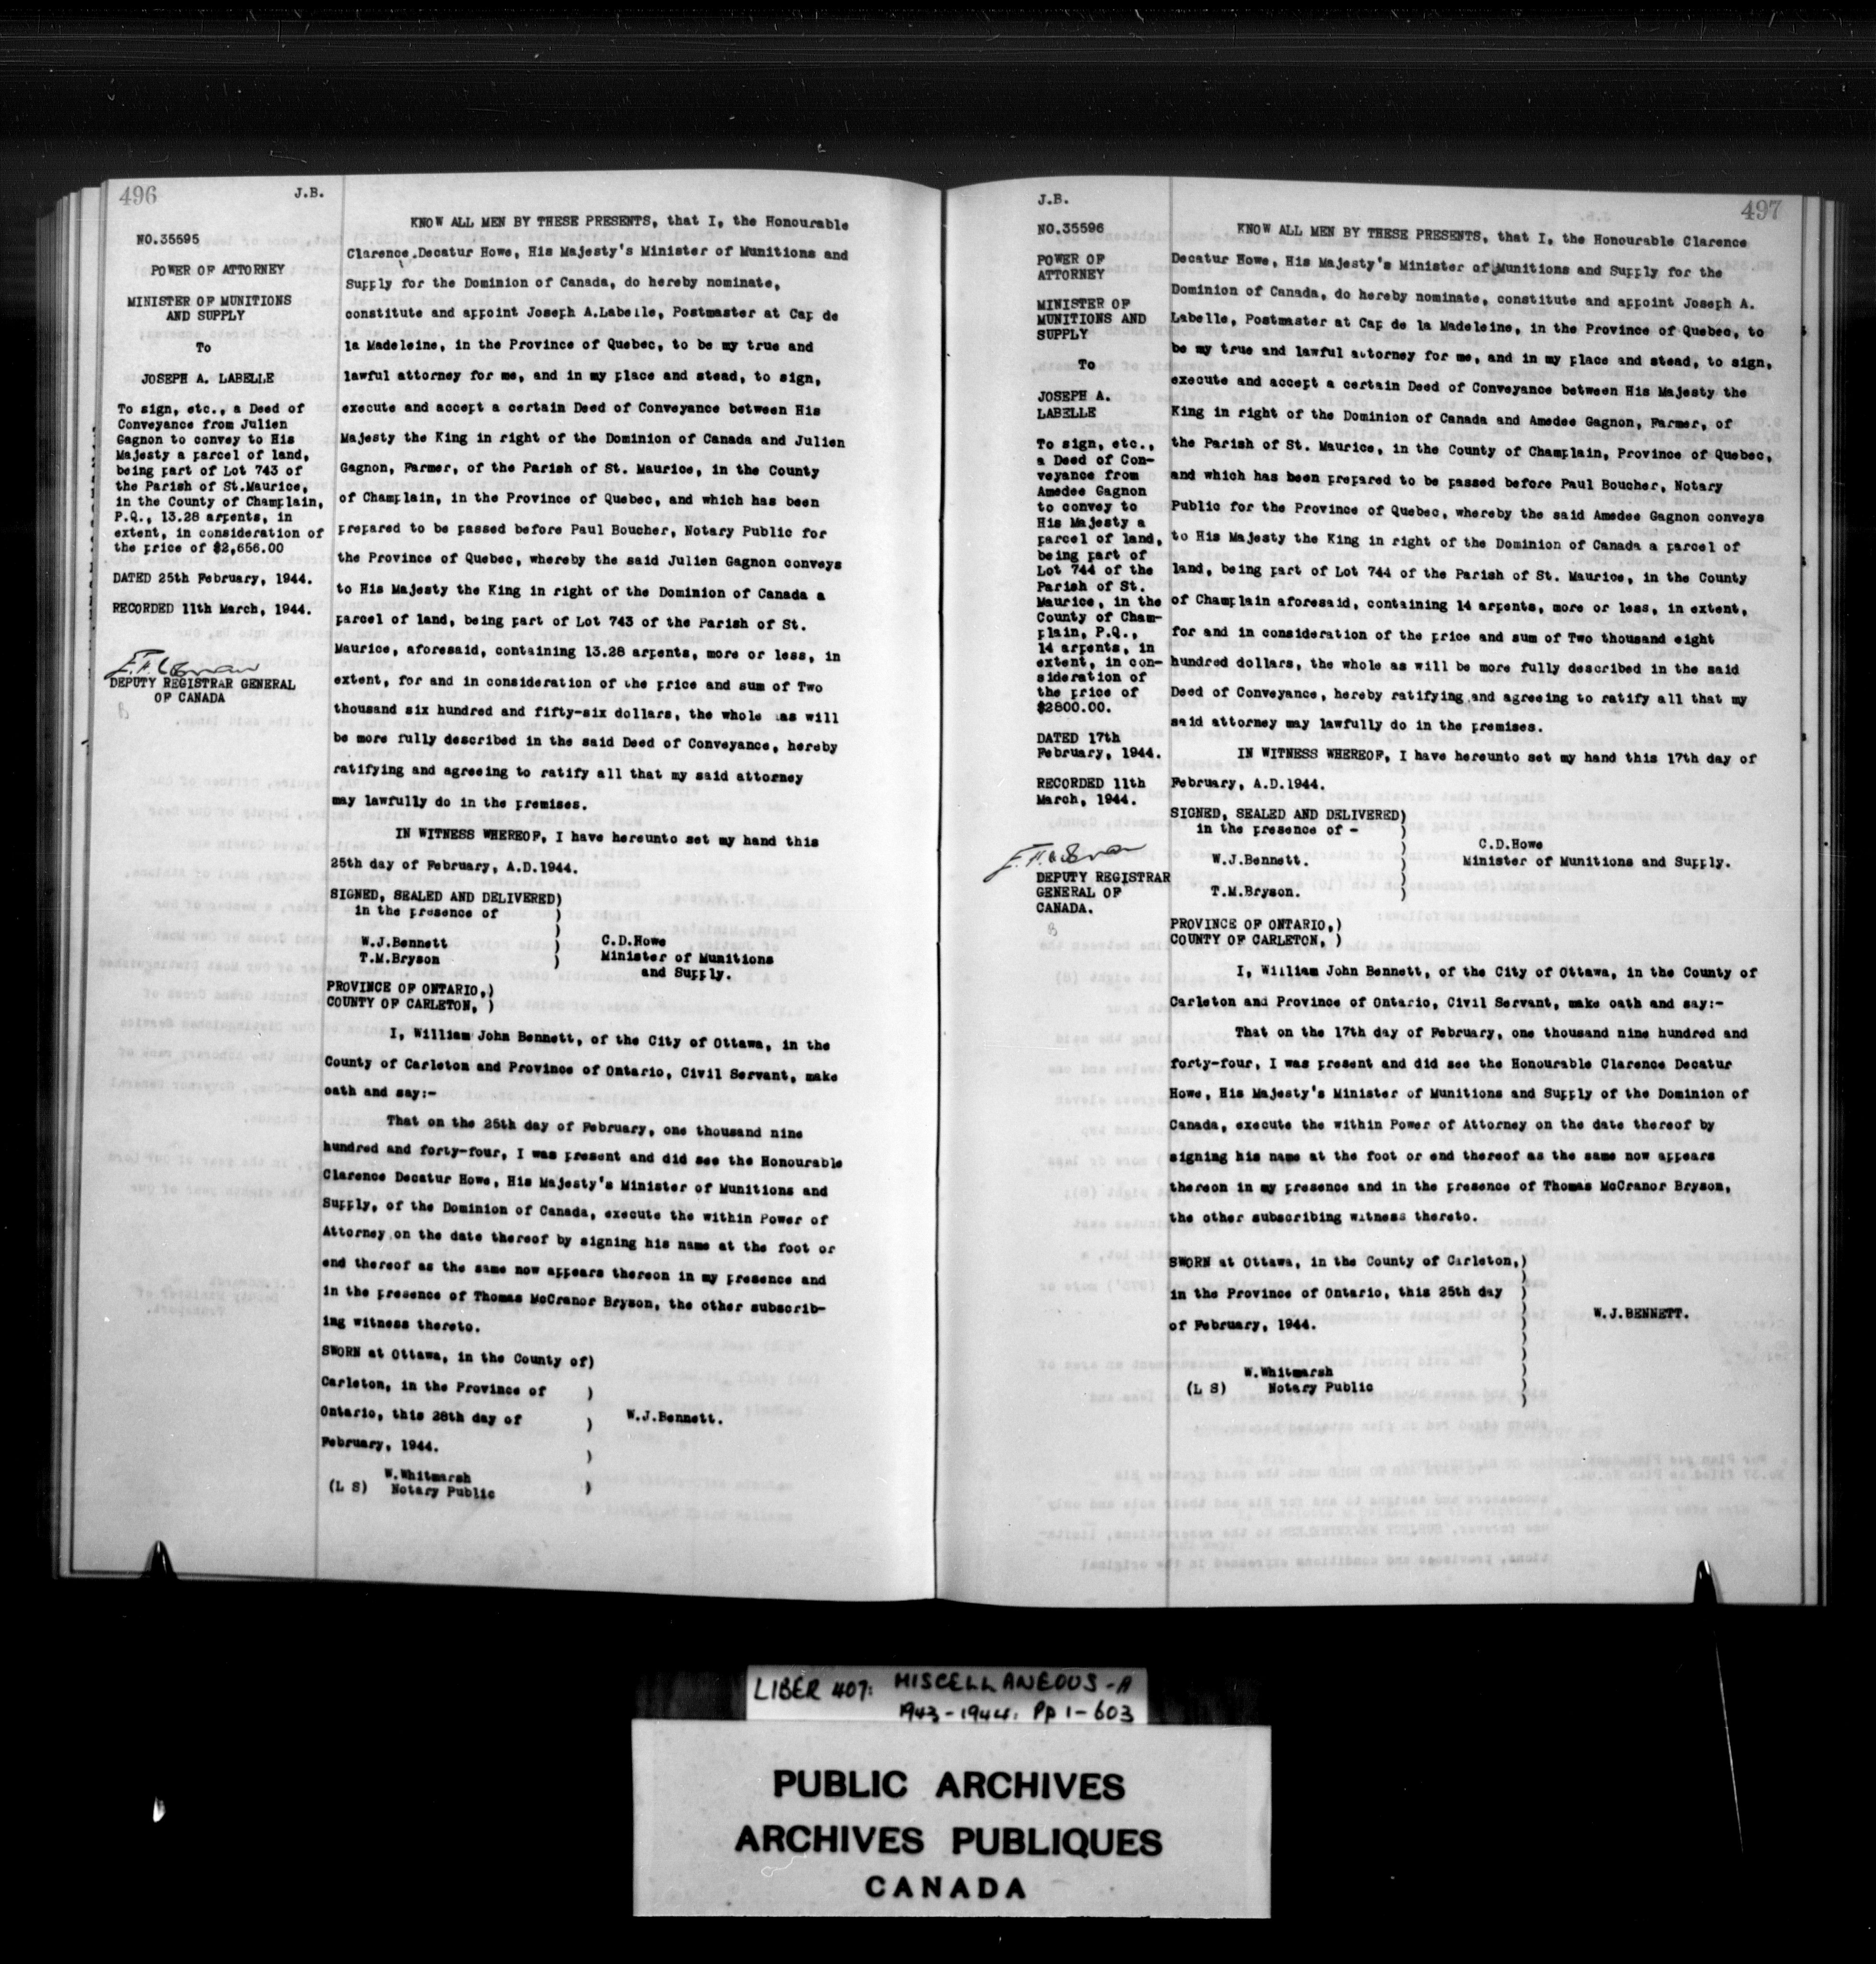 496
J.B.
NO.35595
POWER OF ATTORNEY
MINISTER OF MUNITIONS
AND SUPPLY
To
JOSEPH A. LABELLE
To sign, etc., a Deed of
Conveyance from Julien
Gagnon to convey to His
Majesty a parcel of land,
being part of Lot 743 of
the Parish of St.Maurice,
in the County of Champlain,
P.Q., 13.28 arpents, in
extent, in consideration of
the price of $2,656.00
DATED 25th February, 1944.
RECORDED 11th March, 1944.
DEPUTY REGISTRAR GENERAL
OF CANADA
KNOW ALL MEN BY THESE PRESENTS, that I, the Honourable
Clarence Decatur Howe, His Majesty's Minister of Munitions and
Supply for the Dominion of Canada, do hereby nominate,
constitute and appoint Joseph A.Labelle, Postmaster at Cap de
la Madeleine, in the Province of Quebec, to be my true and
lawful attorney for me, and in my place and stead, to sign,
execute and accept a certain Deed of Conveyance between His
Majesty the King in right of the Dominion of Canada and Julien
Gagnon, Farmer, of the Parish of St. Maurice, in the County
of Champlain, in the Province of Quebec, and which has been
prepared to be passed before Paul Boucher, Notary Public for
the Province of Quebec, whereby the said Julien Gagnon conveys
to His Majesty the King in right of the Dominion of Canada a
parcel of land, being part of Lot 743 of the Parish of St.
Maurice, aforesaid, containing 13.28 arpents, more or less, in
extent, for and in consideration of the price and sum of Two
thousand six hundred and fifty-six dollars, the whole as will
be more fully described in the said Deed of Conveyance, hereby
ratifying and agreeing to ratify all that my said attorney
may lawfully do in the premises.
IN WITNESS WHEREOF, I have hereunto set my hand this
25th day of February, A.D.1944.
SIGNED, SEALED AND DELIVERED)
in the presence of )
)
W.J.Bennett ) C.D.Howe
T.M.Bryson ) Minister of Munitions
and Supply.
PROVINCE OF ONTARIO,)
COUNTY OF CARLETON, )
I, William John Bennett, of the City of Ottawa, in the
County of Carleton and Province of Ontario, Civil Servant, make
oath and say:-
That on the 25th day of February, one thousand nine
hundred and forty-four, I was present and did see the Honourable
Clarence Decatur Howe, His Majesty's Minister of Munitions and
Supply, of the Dominion of Canada, execute the within Power of
Attorney on the date thereof by signing his name at the foot or
end thereof as the same now appears thereon in my presence and
in the presence of Thomas McCranor Bryson, the other subscrib-
ing witness thereto.
SWORN at Ottawa, in the County of)
Carleton, in the Province of )
Ontario, this 28th day of ) W.J.Bennett.
February, 1944. )
W.Whitmarsh
(L S) Notary Public )
J.B.
497
NO.35596
POWER OF
ATTORNEY
MINISTER OF
MUNITIONS AND
SUPPLY
To
JOSEPH A.
LABELLE
To sign, etc.,
a Deed of Con-
veyance from
Amedee Gagnon
to convey to
His Majesty a
parcel of land,
being part of
Lot 744 of the
Parish of St.
Maurice, in the
County of Cham-
plain, P.Q.,
14 arpents, in
extent, in con-
sideration of
the price of
$2800.00.
DATED 17th
February, 1944.
RECORDED 11th
March, 1944.
DEPUTY REGISTRAR
GENERAL OF
CANADA.
KNOW ALL MEN BY THESE PRESENTS, that I, the Honourable Clarence
Decatur Howe, His Majesty's Minister of Munitions and Supply for the
Dominion of Canada, do hereby nominate, constitute and appoint Joseph A.
Labelle, Postmaster at Cap de la Madeleine, in the Province of Quebec, to
be my true and lawful attorney for me, and in my place and stead, to sign,
execute and accept a certain Deed of Conveyance between His Majesty the
King in right of the Dominion of Canada and Amedee Gagnon, Farmer, of
the Parish of St. Maurice, in the County of Champlain, Province of Quebec,
and which has been prepared to be passed before Paul Boucher, Notary
Public for the Province of Quebec, whereby the said Amedee Gagnon conveys
to His Majesty the King in right of the Dominion of Canada a parcel of
land, being part of Lot 744 of the Parish of St. Maurice, in the County
of Champlain aforesaid, containing 14 arpents, more or less, in extent,
for and in consideration of the price and sum of Two thousand eight
hundred dollars, the whole as will be more fully described in the said
Deed of Conveyance, hereby ratifying and agreeing to ratify all that my
said attorney may lawfully do in the premises.
IN WITNESS WHEREOF, I have hereunto set my hand this 17th day of
February, A.D.1944.
SIGNED, SEALED AND DELIVERED)
in the presence of - )
) C.D.Howe
W.J.Bennett. ) Minister of Munitions and Supply.
)
T.M.Bryson. )
PROVINCE OF ONTARIO,)
COUNTY OF CARLETON, )
I, William John Bennett, of the City of Ottawa, in the County of
Carleton and Province of Ontario, Civil Servant, make oath and say:-
That on the 17th day of February, one thousand nine hundred and
forty-four, I was present and did see the Honourable Clarence Decatur
Howe, His Majesty's Minister of Munitions and Supply of the Dominion of
Canada, execute the within Power of Attorney on the date thereof by
signing his name at the foot or end thereof as the same now appears
thereon in my presence and in the presence of Thomas McCranor Bryson,
the other subscribing witness thereto.
SWORN at Ottawa, in the County of Carleton,)
in the Province of Ontario, this 25th day )
of February, 1944. ) W.J.BENNETT.
W.Whitmarsh )
(L S) Notary Public )
LIBER 407: MISCELLANEOUS-A
1943-1944: Pp 1-603
PUBLIC ARCHIVES
ARCHIVES PUBLIQUES
CANADA